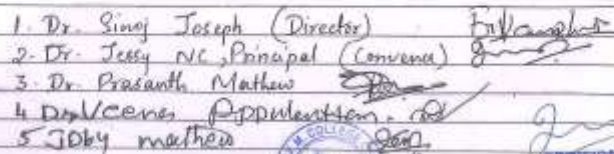 1. Dr. Sinoj Joseph (Director)
2. Dr. Jessy NC, Principal (Convener)
3. Dr. Prasanth Mathew
4 Dr. Veena Appukuttan.
5 JOby mathew
M. COLLEGE